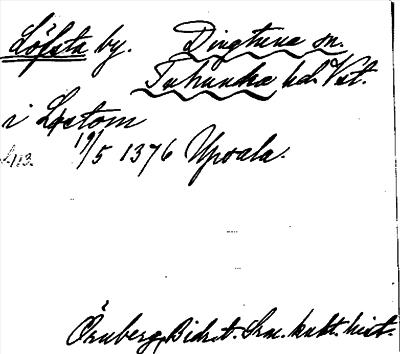 Löfsta by. Dingtuna sn.
Tuhundra hd. Vst.
i Løstom
19/5 1376 Upsala.
Örnberg, Bidr. t. Sv. kult. hist.